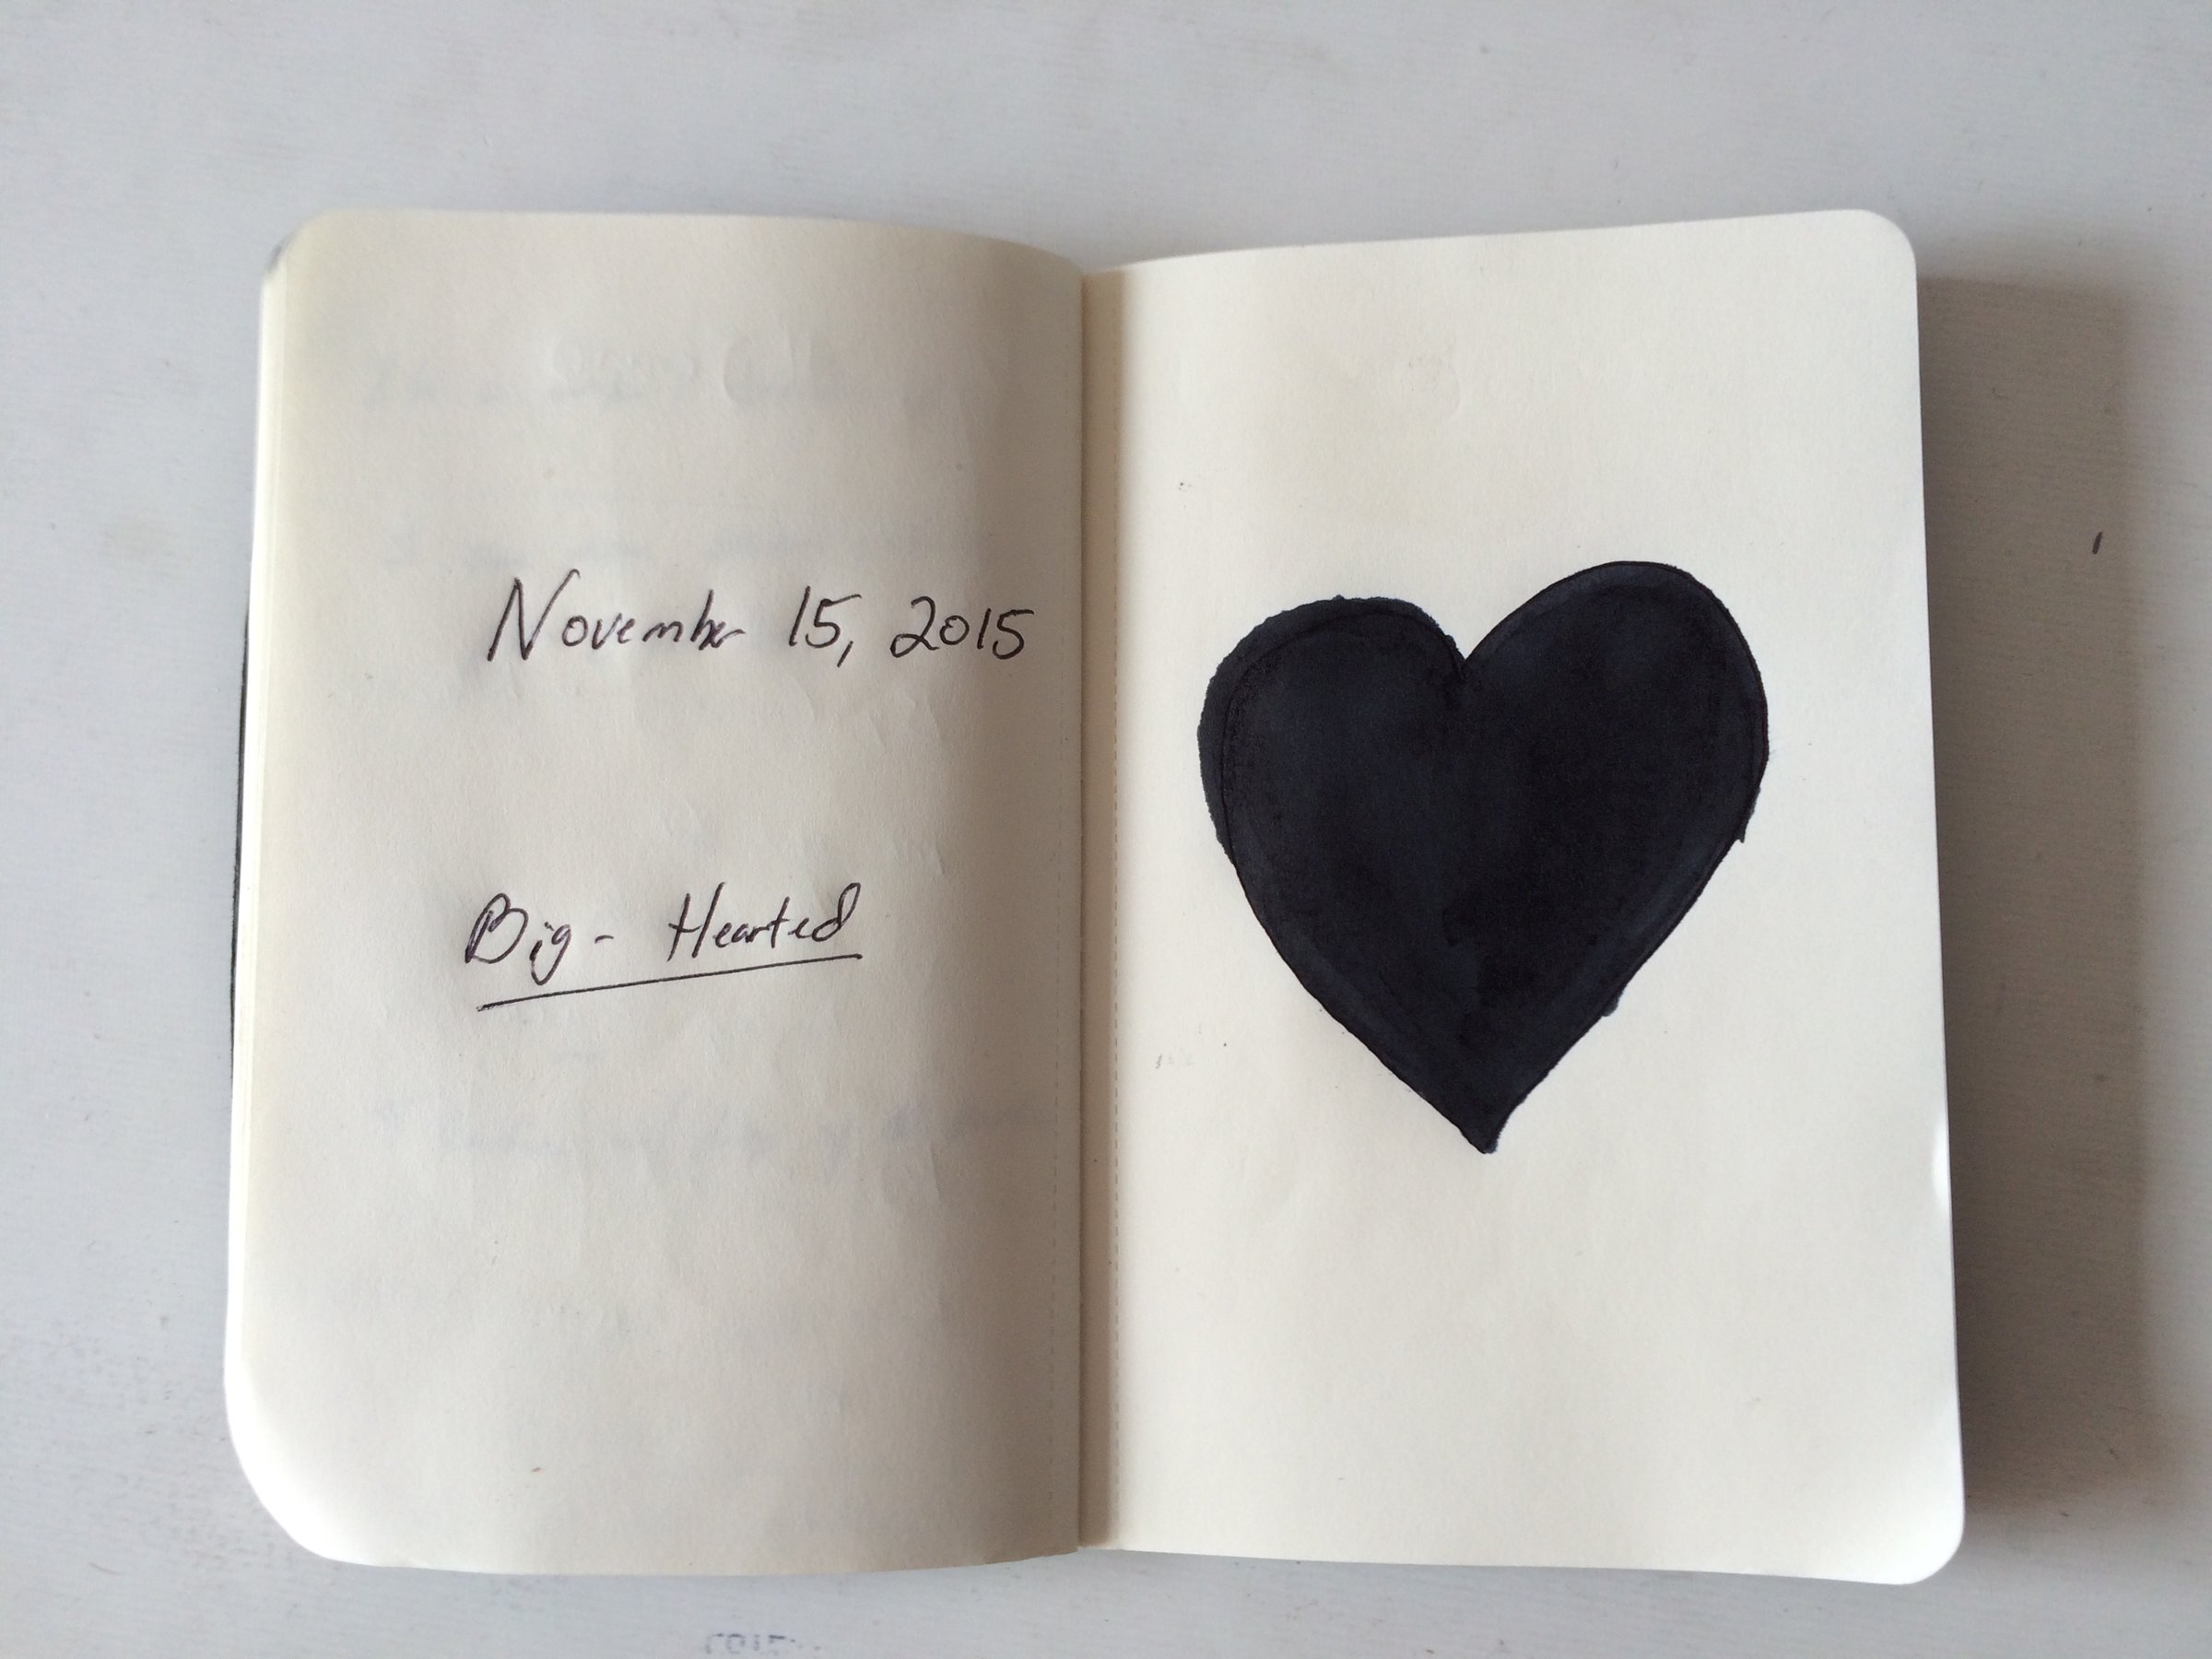 November 15, 2015
Big- Hearted